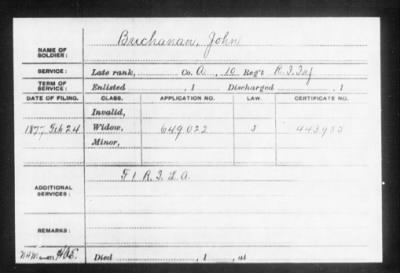 NAME OF
SOLDIER:
Buchanan, John
SERVICE:
Late rank, Co. A, 10 Reg't R. I. Inf
TERM OF
SERVICE:
Enlisted , 1 Discharged , 1
DATE OF FILING. CLASS. APPLICATION NO. LAW. CERTIFICATE NO.
Invalid,
1897 Feb 24 Widow, 649,022 443955
Minor,
ADDITIONAL
SERVICES:
F 1 R. I. L. A.
REMARKS:
Died , 1 , at